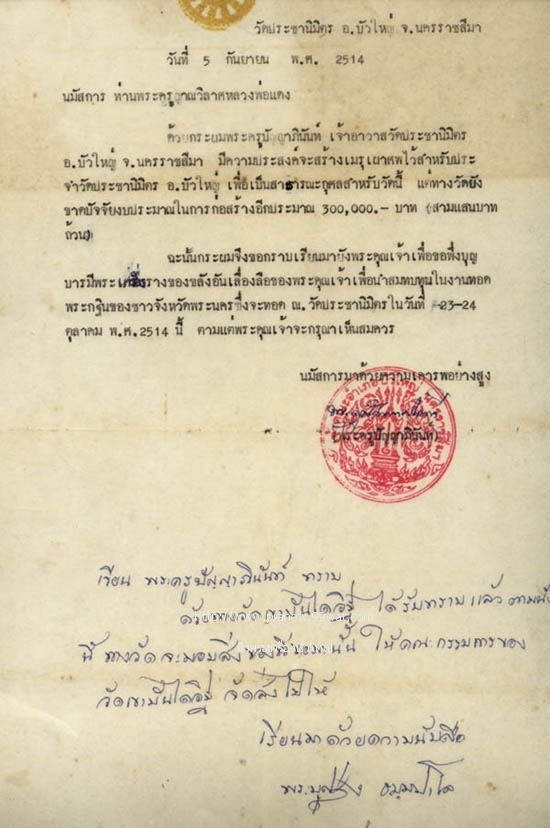 วัดประชานิมิตร อ.บัวใหญ่ จ.นครราชสีมา
วันที่ 5 กันยายน พ.ศ. 2514
นมัสการ ท่านพระครูญาณวิลาศหลวงพ่อแดง
ด้วยกระผมพระครูปัญญาภินันท์ เจ้าอาวาสวัดประชานิมิตร
อ.บัวใหญ่ จ.นครราชสีมา มีความประสงค์จะสร้างเมรุเผาศพไว้สำหรับประ
จำวัดประชานิมิตร อ.บัวใหญ่ เพื่อเป็นสาธารณะกุศลสำหรับวัดนี้ แต่ทางวัดยัง
ขาดปัจจัยงบประมาณในการก่อสร้างอีกประมาณ 300,000.- บาท (สามแสนบาท
ถ้วน)
ฉะนั้นกระผมจึงขอกราบเรียนมายังพระคุณเจ้าเพื่อขอพึ่งบุญ
บารมีพระเครื่องรางของขลังอันเลื่องลือของพระคุณเจ้าเพื่อนำสมทบทุนในงานทอด
พระกฐินของชาวจังหวัดพระนครซึ่งจะทอด ณ.วัดประชานิมิตรในวันที่ 23-24
ตุลาคม พ.ศ.2514 นี้ ตามแต่พระคุณเจ้าจะกรุณาเห็นสมควร
นมัสการมาด้วยความเคารพอย่างสูง
(พระครูปัญญาภินันท์)
เรียน พระครูปัญญาภินันท์ ทราบ
ด้วยทางวัดเขาบันไดอิฐ ได้รับทราบแล้ว ตามนั้น
นี้ ทางวัดจะมอบสิ่งของ นั้น ให้คณะกรรมการของ
วัดเขาบันไดอิฐ จัดส่งไปให้
เรียนมาด้วยความนับถือ
พระบุญส่ง ธมฺมปาโล